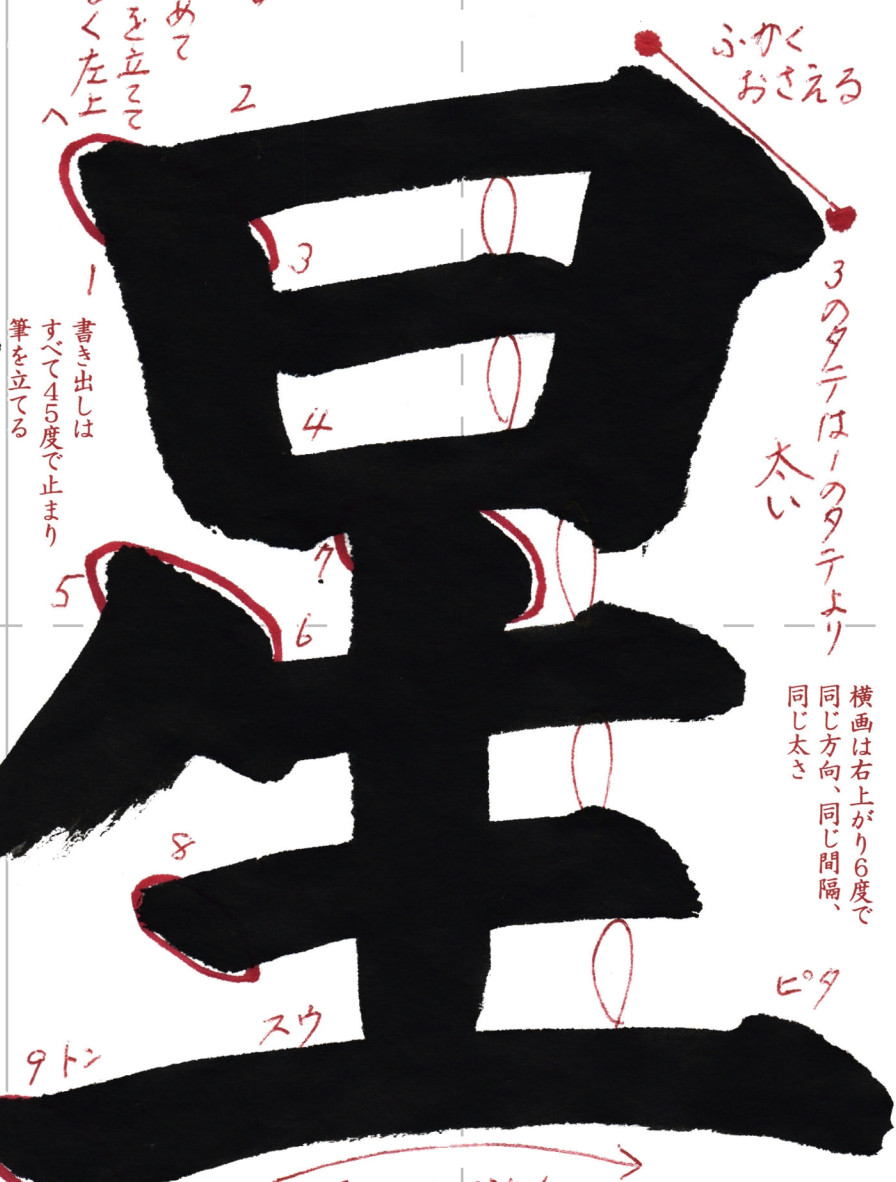 星
ふかく
おさえる
めて
を立てて
く左上
へ
2
1
3
4
書き出しは
すべて45度で止まり
筆を立てる
3のタテは1のタテより
太い
5
6
7
横画は右上がり6度で
同じ方向、同じ間隔、
同じ太さ
8
9トン
スウ
ピタ